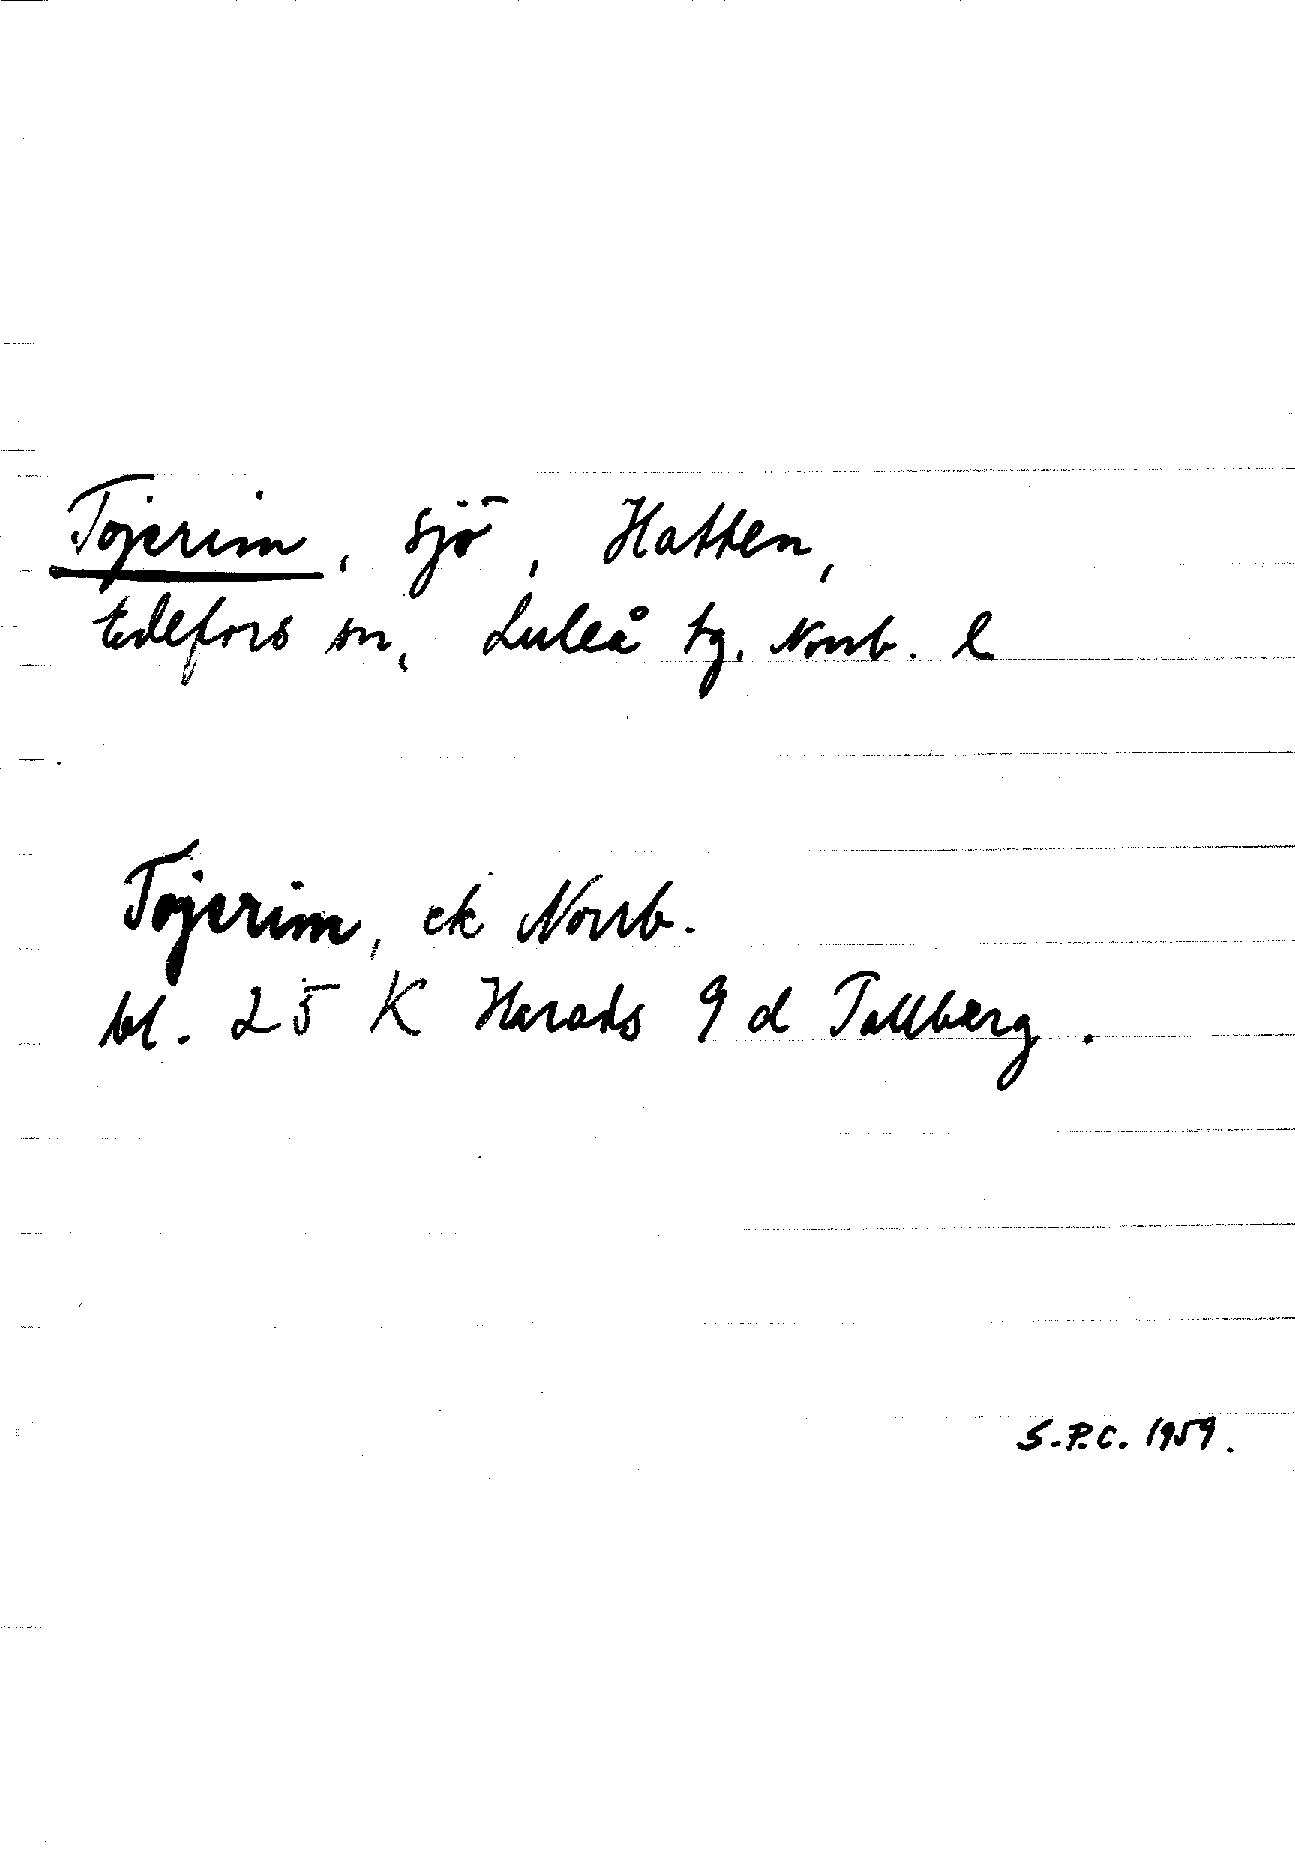 Tojerim, sjö, Hatten,
Edefors sn, Luleå tg. Norrb. l
Tojerim, ek Norrb.
bl. 25 K Harads 9 d Tallberg.
S.P.C. 1959.